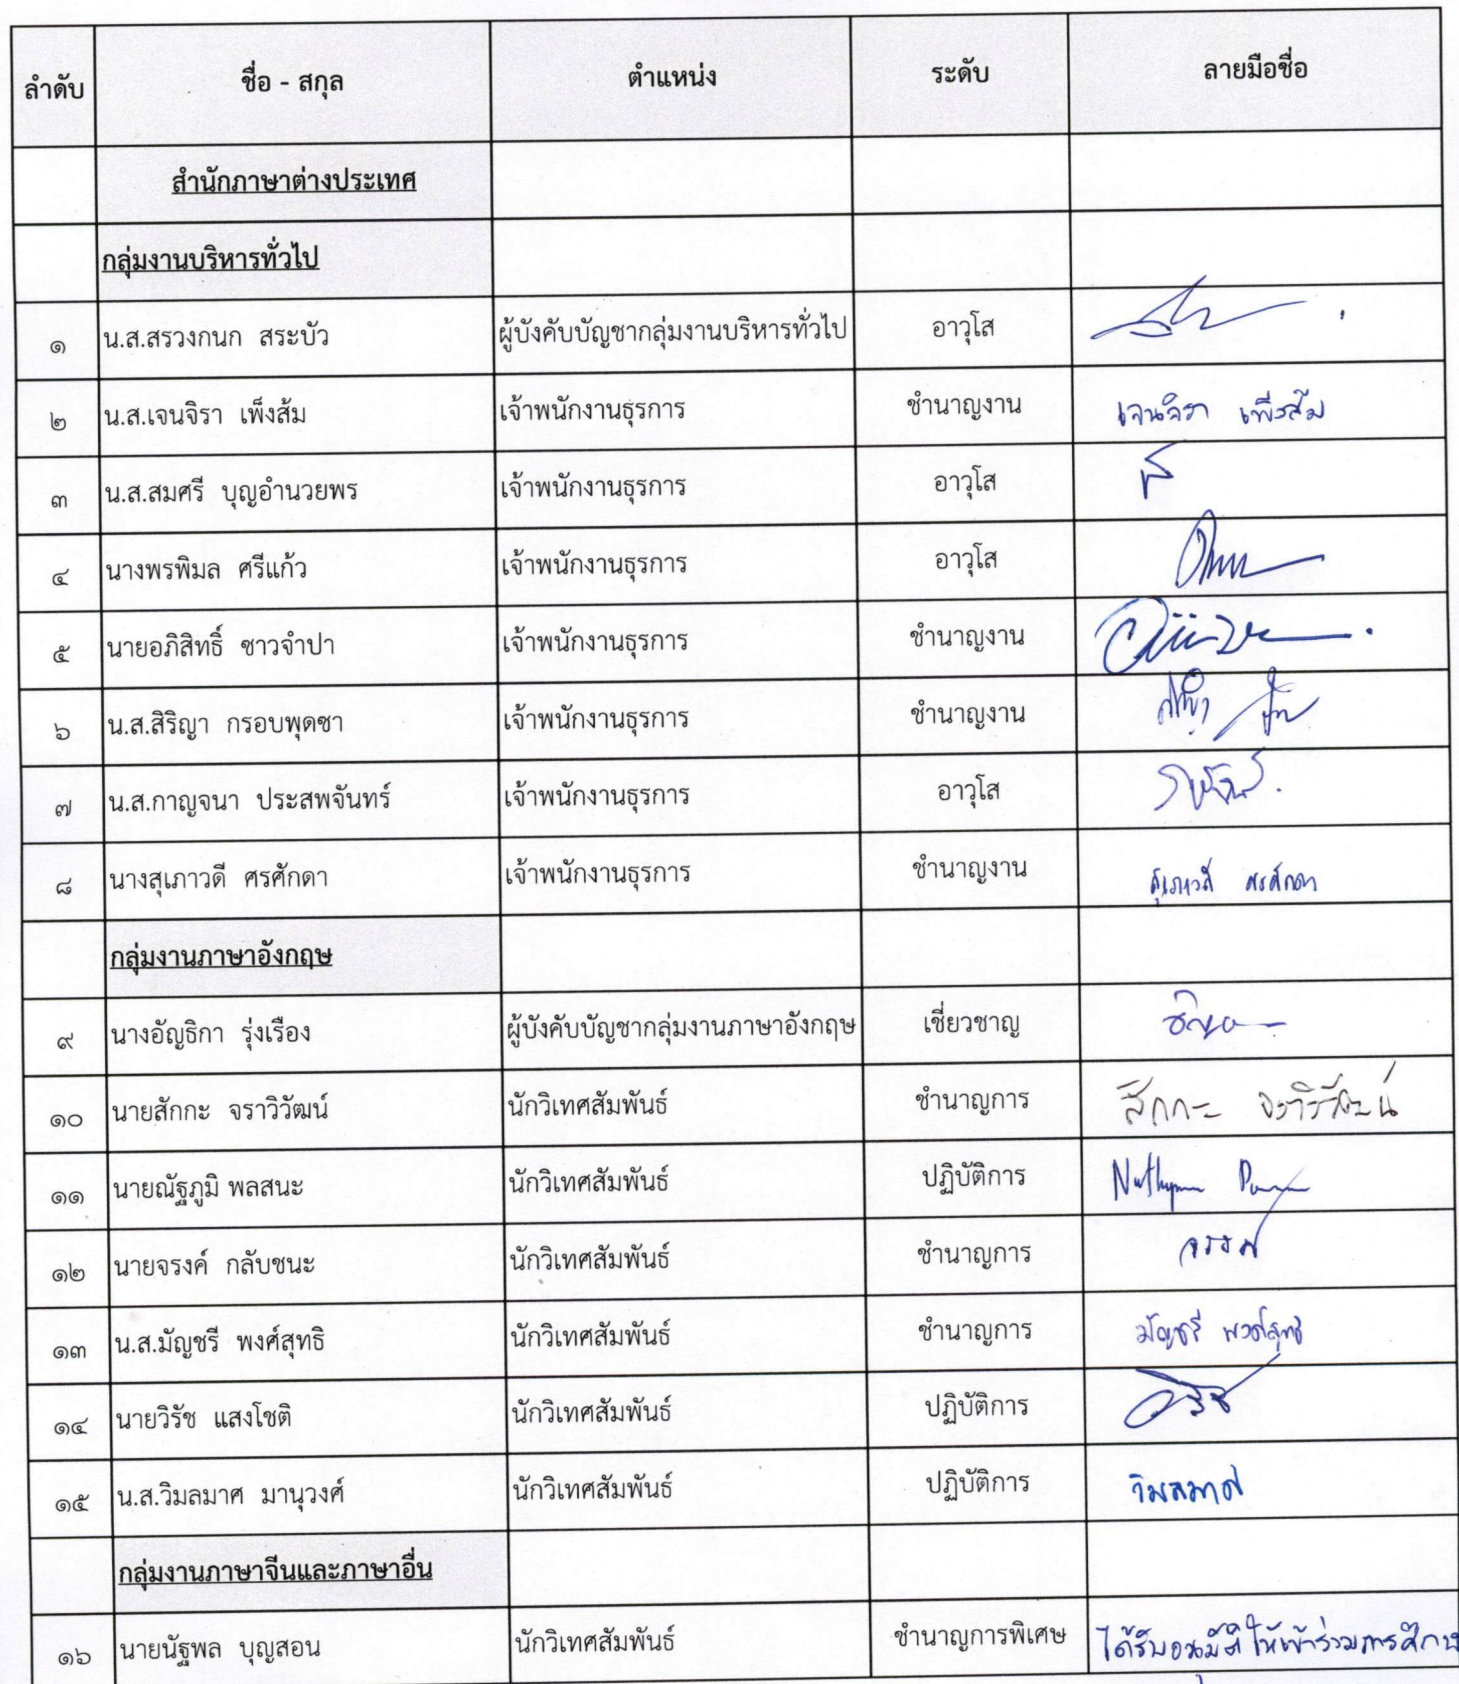 ลำดับ ชื่อ - สกุล ตำแหน่ง ระดับ ลายมือชื่อ
สำนักภาษาต่างประเทศ
กลุ่มงานบริหารทั่วไป
๑ น.ส.สรวงกนก สระบัว ผู้บังคับบัญชากลุ่มงานบริหารทั่วไป อาวุโส
๒ น.ส.เจนจิรา เพ็งส้ม เจ้าพนักงานธุรการ ชำนาญงาน เจนจิรา เพ็งส้ม
๓ น.ส.สมศรี บุญอำนวยพร เจ้าพนักงานธุรการ อาวุโส
๔ นางพรพิมล ศรีแก้ว เจ้าพนักงานธุรการ อาวุโส
๕ นายอภิสิทธิ์ ซาวจำปา เจ้าพนักงานธุรการ ชำนาญงาน
๖ น.ส.สิริญา กรอบพุดซา เจ้าพนักงานธุรการ ชำนาญงาน
๗ น.ส.กาญจนา ประสพจันทร์ เจ้าพนักงานธุรการ อาวุโส
๘ นางสุเภาวดี ศรศักดา เจ้าพนักงานธุรการ ชำนาญงาน สุเภาวดี ศรศักดา
กลุ่มงานภาษาอังกฤษ
๙ นางอัญธิกา รุ่งเรือง ผู้บังคับบัญชากลุ่มงานภาษาอังกฤษ เชี่ยวชาญ
๑๐ นายสักกะ จราวิวัฒน์ นักวิเทศสัมพันธ์ ชำนาญการ สักกะ จราวิวัฒน์
๑๑ นายณัฐภูมิ พลสนะ นักวิเทศสัมพันธ์ ปฏิบัติการ
๑๒ นายจรงค์ กลับชนะ นักวิเทศสัมพันธ์ ชำนาญการ จรงค์
๑๓ น.ส.มัญชรี พงศ์สุทธิ นักวิเทศสัมพันธ์ ชำนาญการ มัญชรี พงศ์สุทธิ
๑๔ นายวิรัช แสงโชติ นักวิเทศสัมพันธ์ ปฏิบัติการ วิรัช
๑๕ น.ส.วิมลมาศ มานุวงศ์ นักวิเทศสัมพันธ์ ปฏิบัติการ วิมลมาศ
กลุ่มงานภาษาจีนและภาษาอื่น
๑๖ นายนัฐพล บุญสอน นักวิเทศสัมพันธ์ ชำนาญการพิเศษ ได้รับอนุมัติให้เข้าร่วมการศึกษ